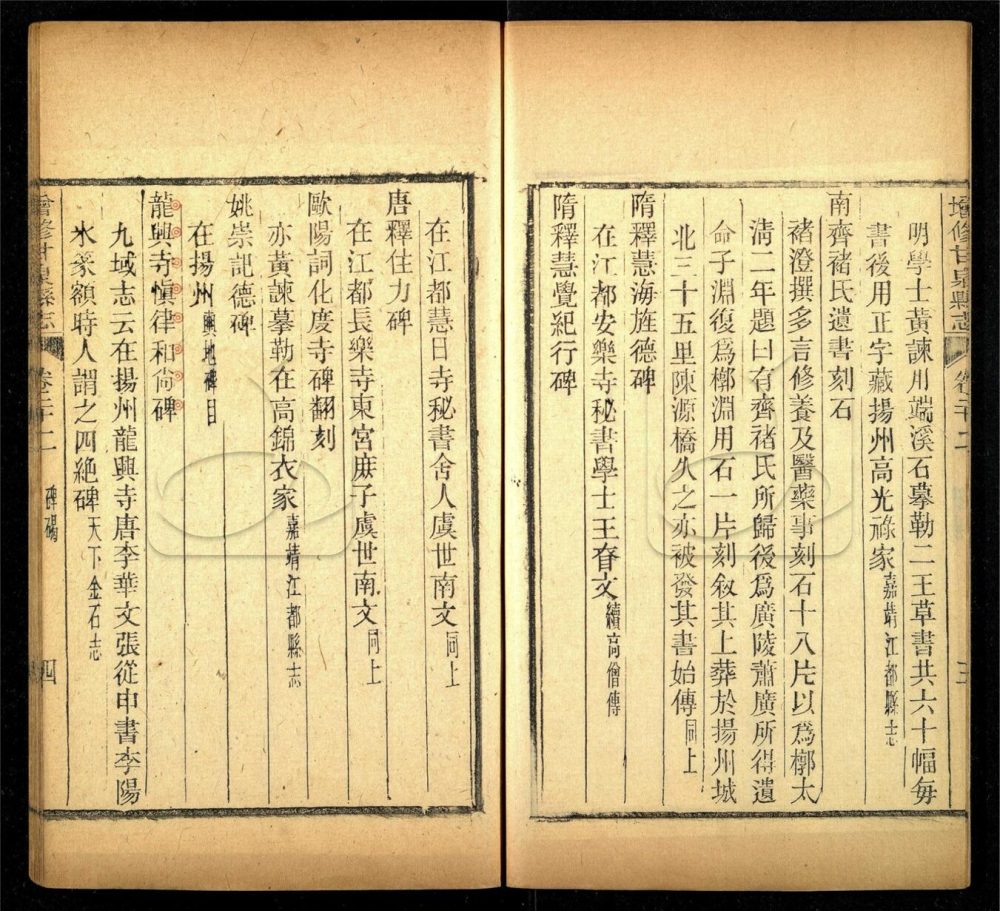 增修甘泉縣志 卷二十二 三
明學士黃諫用端溪石摹勒二王草書共六十幅每
書後用正字藏揚州高光祿家嘉靖江都縣志
南齊褚氏遺書刻石
褚澄撰多言修養及醫藥事刻石十八片以爲槨太
淸二年題曰有齊褚氏所歸後爲廣陵蕭廣所得遺
命子淵復爲槨淵用石一片刻敘其上葬於揚州城
北三十五里陳源橋久之亦被發其書始傳同上
隋釋慧海旌德碑
在江都安樂寺秘書學士王眘文續高僧傳
隋釋慧覺紀行碑
在江都慧日寺秘書舍人虞世南文同上
唐釋住力碑
在江都長樂寺東宮庶子虞世南文同上
歐陽詢化度寺碑翻刻
亦黃諫摹勒在高錦衣家嘉靖江都縣志
姚崇記德碑
在揚州輿地碑目
龍興寺愼律和尙碑
九域志云在揚州龍興寺唐李華文張從申書李陽
氷篆額時人謂之四絶碑天下金石志
增修甘泉縣志 卷二十二 碑碣 四